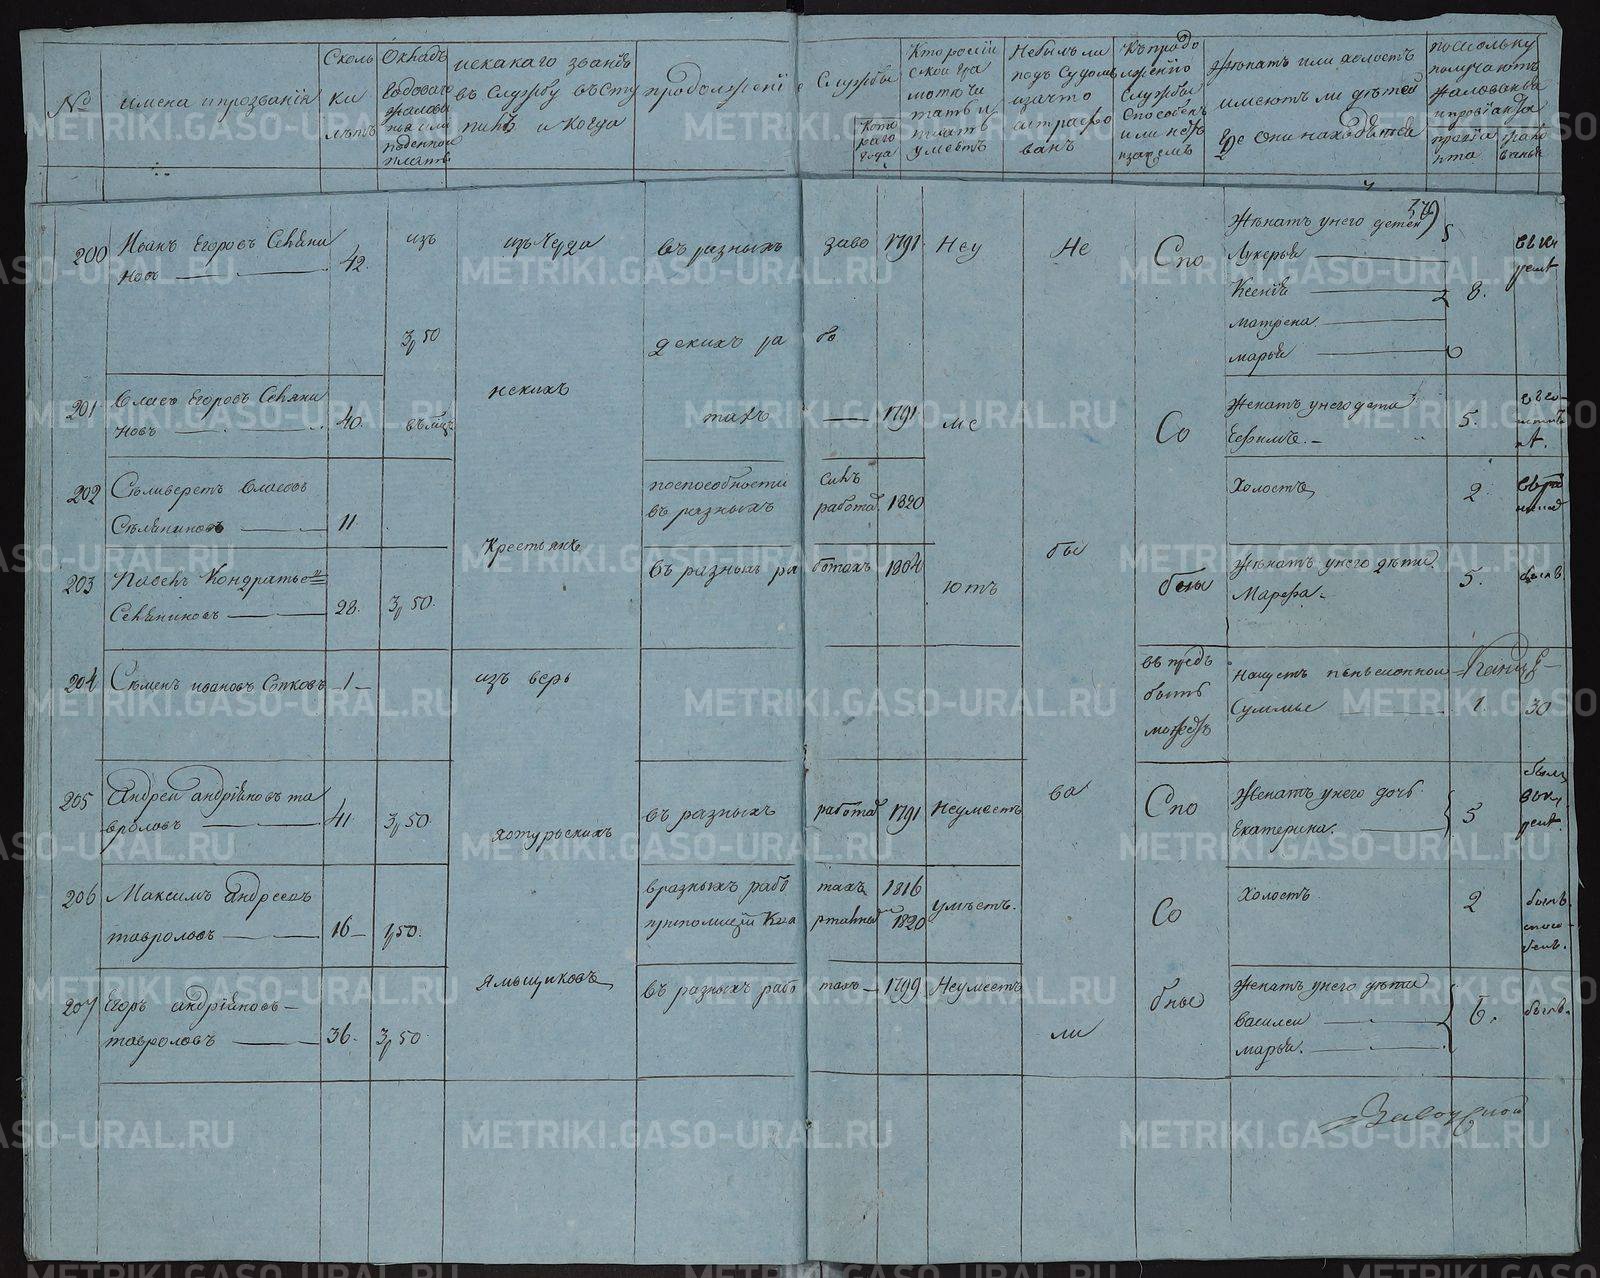 №
имена и прозвании
Сколь
ки
лѣтъ
Окладъ
годоваго
жалова
нья или
поденной
платы
ис какаго званія
въ службу въсту
пилъ и когда
продолженіе
службы
кото
раго
года
Кто россій
ской гра
мотѣ чи
тать и
писать
умеетъ
Не былъ ли
подъ судомъ
и за что
аштрафо
ванъ
Къ продо
лжению
службы
способенъ
или нетъ
и зачемъ
Женатъ или холостъ
имеютъ ли дѣтей
где они находятся
поскольку
получаютъ
жалованья
и провіанта
провиа
нта
200
Иванъ Егоровъ Селяни
новъ
42.
изъ
изъ Черда
въ разныхъ
заво
1791
Неу
Не
Спо
Женатъ у него детей
Лукерья
Ксения
Матрена
марья
8.
3,50
дскихъ ра
бо
201
Власъ Егоровъ Селяни
новъ
40.
въ мѣц
нскихъ
тахъ
1791
ме
Со
Женатъ у него дети
Ефимъ.
5.
202
Сѣливерстъ Власовъ
Сѣляниновъ
11
поспособности
въ разныхъ
работа
1820
Холостъ
2
203
Пасенъ Кондратьевъ
Селяниновъ
28.
3,50.
Крестьянъ
въ разныхъ ра
ботахъ
1804
ютъ
бы
бны
Женатъ у него дѣти
Марфа.
5.
былъ
204
Сѣменъ ивановъ Сопковъ
1
изъ верь
въ предъ
быть
можетъ
на щетъ пеньсионной
суммы
1.
30
205
Андреи андрѣиновъ та
вроловъ
41
3,50.
хотурьскихъ
въ разныхъ
работа
1791
Неумеетъ
ва
Спо
Женатъ у него дочь
Екатерина.
3
былъ
206
Максимъ андреевъ
тавроловъ
16
1,50.
в разныхъ рабо
тахъ
1816
1820
умѣетъ.
Со
Холостъ
2
былъ
спосо
бенъ.
207
Егоръ андрѣиновъ
тавроловъ
36.
3,50
Ямьщиковъ
въ разныхъ рабо
тахъ
1799
Неумеетъ
ли
бные
Женатъ у него дѣти
василеи
марья.
6.
былъ.
METRIKI.GASO-URAL.RU